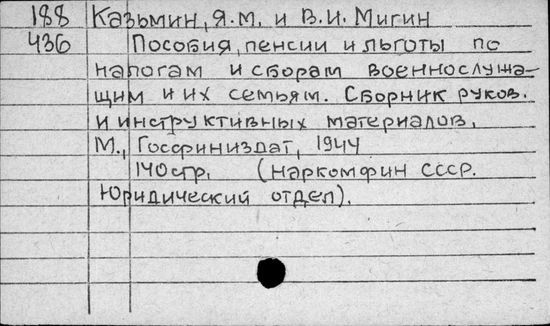 188 Казьмин, Я.М. и В.И. Мигин
436 Пособия, пенсии и льготы по
налогам и сборам военнослужа-
щим и их семьям. Сборник руков.
и инструктивных материалов.
М., Госфиниздат, 1944
140стр. (наркомфин СССР.
Юридический отдел).